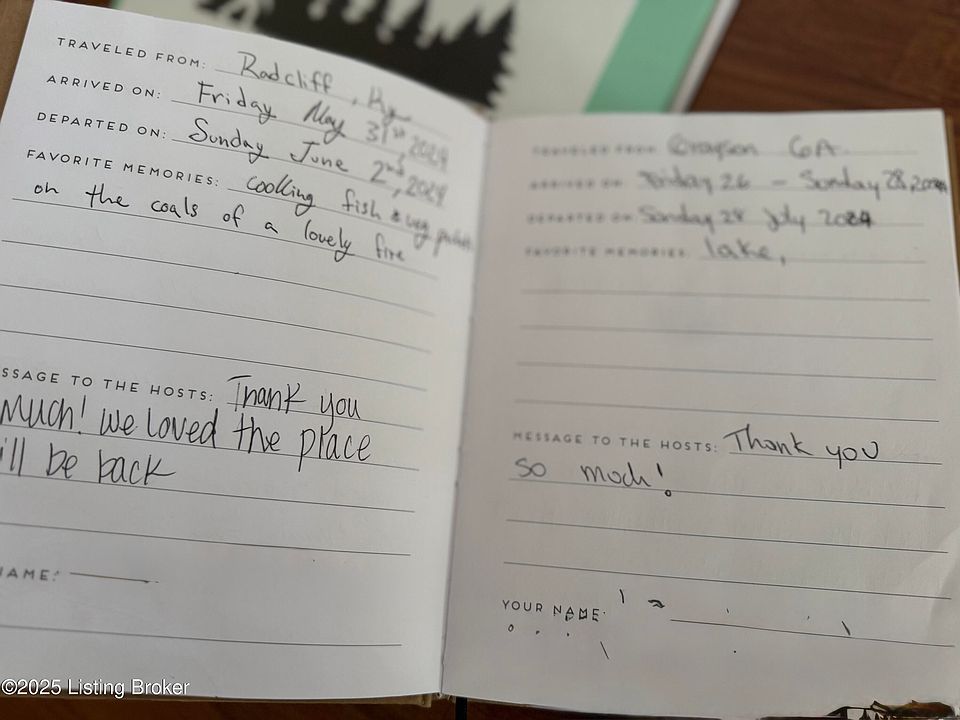 TRAVELED FROM: Radcliff, Ky
ARRIVED ON: Friday May 31st, 2024
DEPARTED ON: Sunday June 2nd, 2024
FAVORITE MEMORIES: cooking fish & veg
on the coals of a lovely fire
SSAGE TO THE HOSTS: Thank you
Much! we loved the place
ill be back
NAME:
TRAVELED FROM: Grayson GA
ARRIVED ON: Friday 26 - Sunday 28, 2024
DEPARTED ON: Sunday 28 July 2024
FAVORITE MEMORIES: lake,
MESSAGE TO THE HOSTS: Thank you
so much!
YOUR NAME:
©2025 Listing Broker